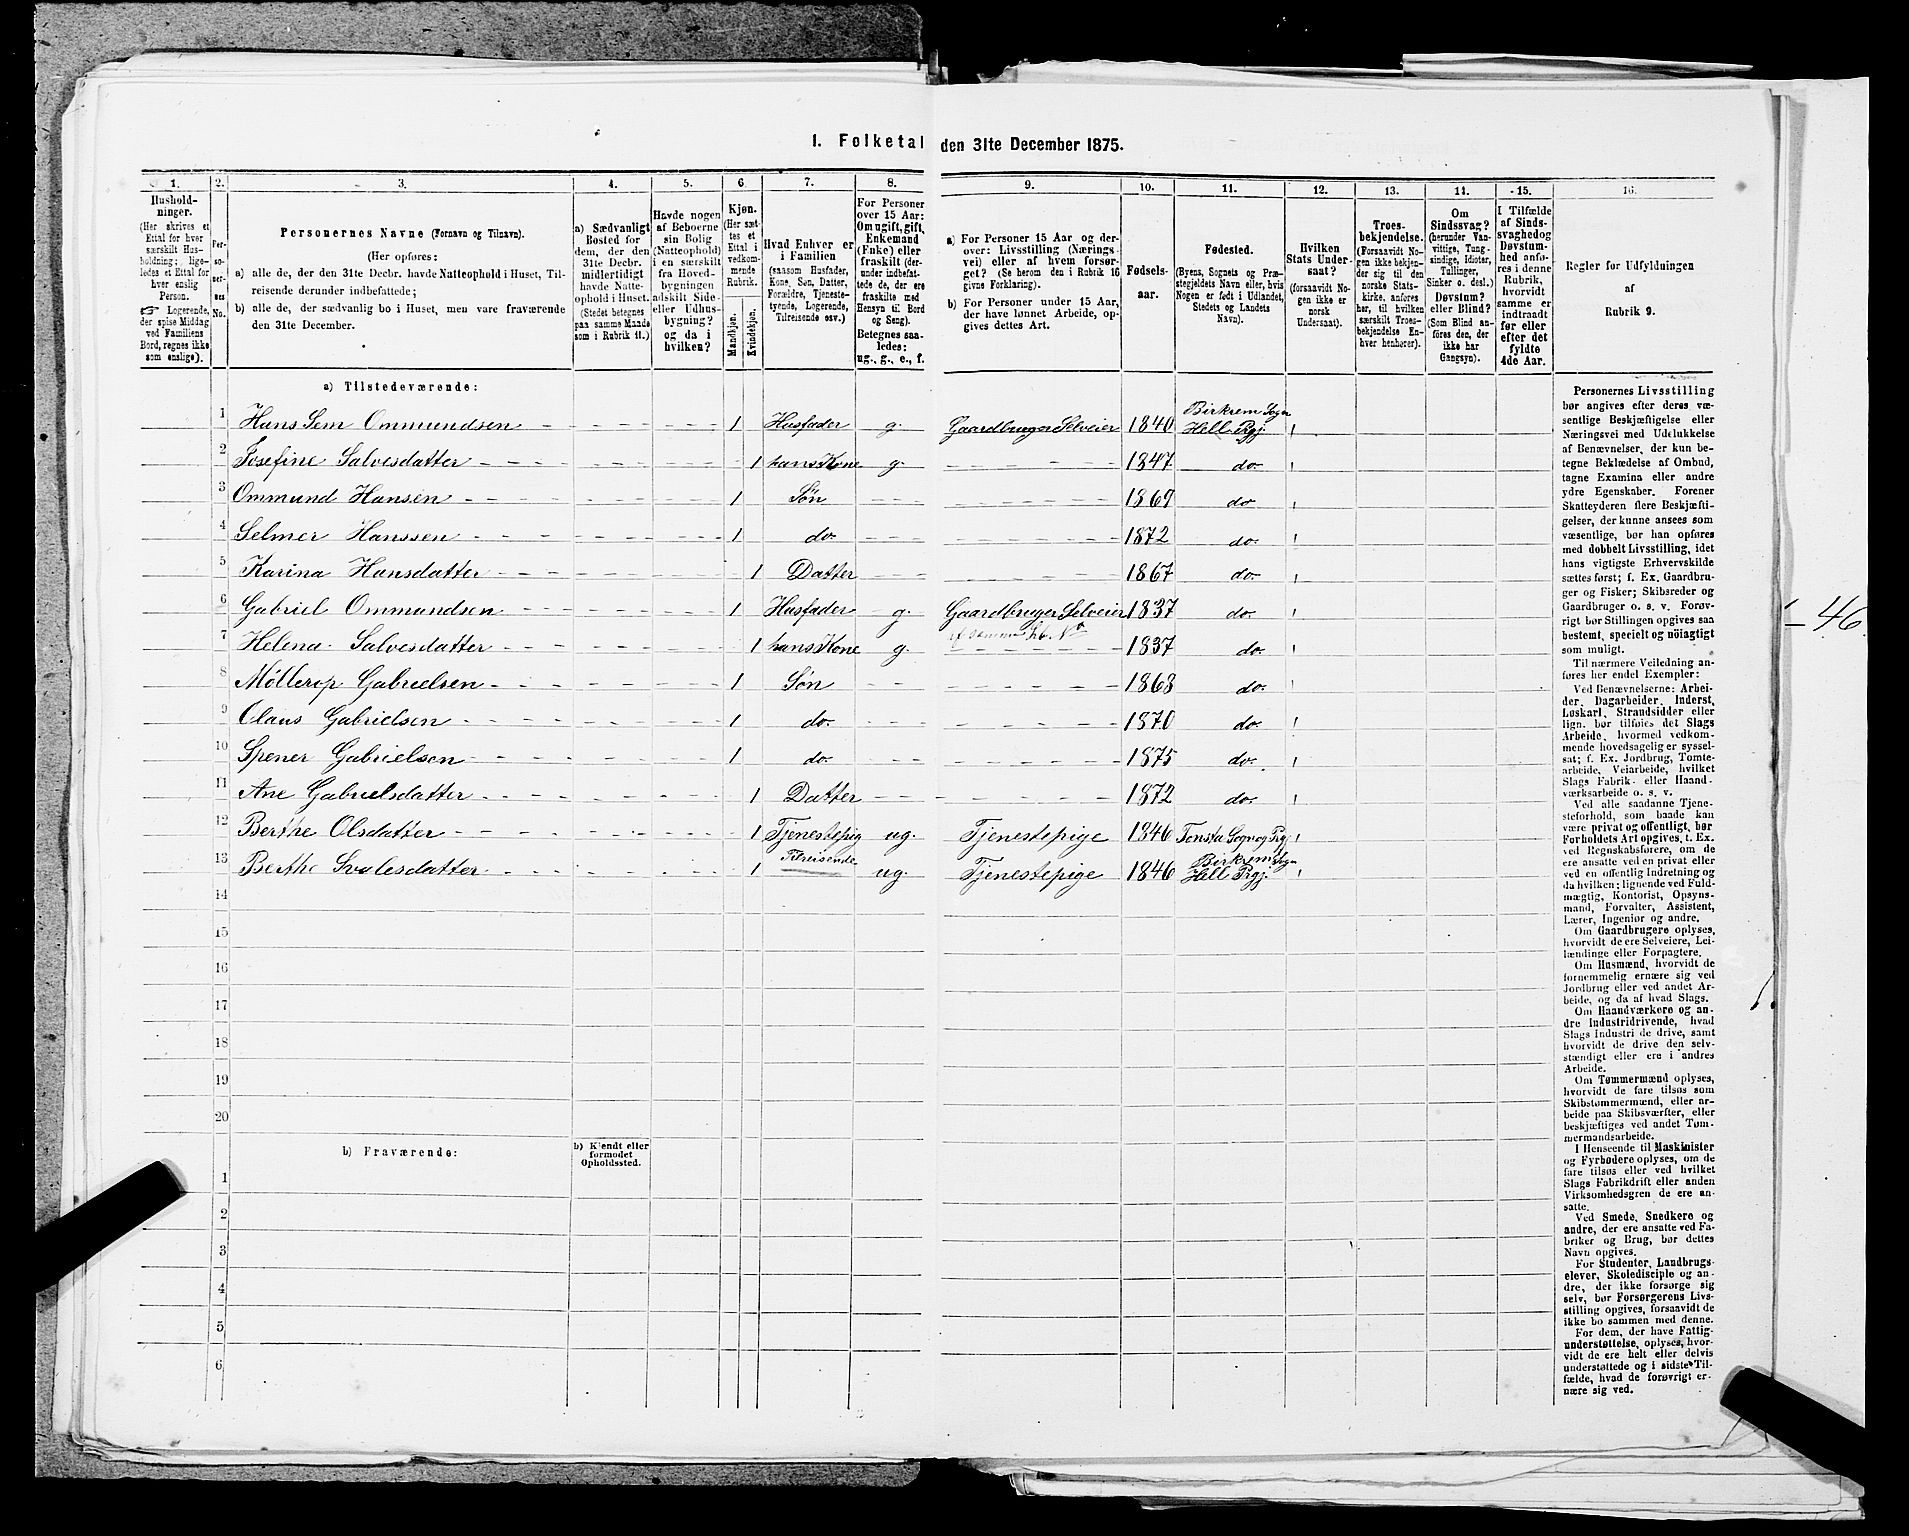 1. Folketal den 31te December 1875.
1.
2.
3.
4.
5.
6
7.
8.
9.
10.
11.
12.
13.
11.
15.
16.
Hushold-
ninger.
(Her skrives et
Ettal for hver
særskilt Hus-
holdning; lige-
ledes et Ettal for
hver enslig
Person.
Logerende,
der spise Middag
ved Familiens
Bord, regnes ikke
som enslige).
Per-
so-
ner-
nes
No.
Personernes Navne (Fornavn og Tilnavn).
(Her opføres:
a) alle de, der den 31te Decbr. havde Natteophold i Huset, Til-
reisende derunder indbefattede;
b) alle de, der sædvanlig bo i Huset, men vare fraværende
den 31te December.
a) Sædvanligt
Bosted for
dem, der den
31te Decbr.
midlertidigt
havde Natte-
ophold i Huset.
(Stedet betegnes
paa samme Maade
som i Rubrik 11.)
Havde nogen
af Beboerne
sin Bolig
(Natteophold)
i en særskilt
fra Hoved-
bygningen
adskilt Side-
eller Udhus-
bygning?
og da i
hvilken?
Kjøn.
(Her sæt-
tes et
Ettal i
vedkom-
mende
Rubrik.
Mandkjøn.
Kvindekjøn.
Hvad Enhver er
i Familien
(saasom Husfader,
Kone, Søn, Datter,
Forældre, Tjeneste-
tyende, Logerende,
Tilreisende osv.)
For Personer
over 15 Aar:
Om ugift, gift,
Enkemand
(Enke) eller
fraskilt (der-
under indbefat-
tede de, der ere
fraskilte med
Hensyn til Bord
og Seng).
Betegnes saa-
ledes:
ug., g., e., f.
a) For Personer 15 Aar og der-
over: Livsstilling (Nærings-
vei) eller af hvem forsør-
get? (Se herom den i Rubrik 16
givne Forklaring).
b) For Personer under 15 Aar,
der have lønnet Arbeide, op-
gives dettes Art.
Fødsels-
aar.
Fødested.
(Byens, Sognets og Præ-
stegjeldets Navn eller, hvis
Nogen er født i Udlandet,
Stedets og Landets
Navn).
Hvilken
Stats Under-
saat?
(forsaavidt No-
gen ikke er
norsk
Undersaat).
Troes-
bekjendelse.
(Forsaavidt No-
gen ikke bekjen-
der sig til den
norske Stats-
kirke, anføres
her, til hvilken
særskilt Troes-
bekjendelse En-
hver henhører).
Om
Sindssvag?
(herunder Van-
vittige, Tung-
sindige, Idioter,
Tullinger,
Sinker o. desl.)
Døvstum?
eller Blind?
(Som Blind an-
føres den, der
ikke har
Gangsyn).
I Tilfælde
af Sinds-
svaghed og
Døvstum-
hed anfø-
res i denne
Rubrik,
hvorvidt
samme er
indtraadt
før eller
efter det
fyldte
4de Aar.
Regler for Udfyldningen
af
Rubrik 9.
a) Tilstedeværende:
1 Hans Sem Ommundsen 1 Husfader g. Gaardbruger Selveier 1840 Birkrem Sogn Hell. Prgj.
2 Josefine Salvesdatter 1 hans Kone g. 1847 do.
3 Ommund Hansen 1 Søn 1869 do
4 Selmer Hanssen 1 do. 1872 do.
5 Karina Hansdatter 1 Datter 1867 do.
6 Gabriel Ommundsen 1 Husfader g. Gaardbruger Selveier 1837 do.
7 Helena Salvesdatter 1 hans Kone g. 1837 do.
8 Møllerop Gabrielsen 1 Søn 1868 do.
9 Olaus Gabrielsen 1 do. 1870 do.
10 Spener Gabrielsen 1 do. 1875 do.
11 Ane Gabrielsdatter 1 Datter 1872 do.
12 Berthe Olsdatter 1 Tjenestepig ug. Tjenestepige 1846 Tonsta Sogn og Prgj
13 Berthe Svalesdatter 1 Tilreisende ug. Tjenestepige 1846 Birkrem Sogn Hell Prgj.
14
15
16
17
18
19
20
b) Fraværende:
b) Kjendt eller
formodet
Opholdssted.
1
2
3
4
5
6
Personernes Livsstilling
bør angives efter deres væ-
sentlige Beskjæftigelse eller
Næringsvei med Udelukkelse
af Benævnelser, der kun be-
tegne Beklædelse af Ombud,
tagne Examina eller andre
ydre Egenskaber. Forener
Skatteyderen flere Beskjæfti-
gelser, der kunne ansees som
væsentlige, bør han opføres
med dobbelt Livsstilling, idet
hans vigtigste Erhvervskilde
sættes først; f. Ex. Gaardbru-
ger og Fisker; Skibsreder og
Gaardbruger o. s. v. Forøv-
rigt bør Stillingen opgives saa
bestemt, specielt og nøiagtigt
som muligt.
Til nærmere Veiledning an-
føres her endel Exempler:
Ved Benævnelserne: Arbei-
der, Dagarbeider, Inderst,
Løskarl, Strandsidder eller
lign. bør tilføies det Slags
Arbeide, hvormed vedkom-
mende hovedsagelig er syssel-
sat; f. Ex. Jordbrug, Tomte-
arbeide, Veiarbeide, hvilket
Slags Fabrik- eller Haand-
værksarbeide o. s. v.
Ved alle saadanne Tjene-
steforhold, som baade kan
være privat og offentligt, bør
Forholdets Art opgives, t. Ex.
ved Regnskabsførere, om de
ere ansatte ved en privat eller
ved en offentlig Indretning og
da hvilken; lignende ved Fuld-
mægtig, Kontorist, Opsyns-
mand, Forvalter, Assistent,
Lærer, Ingeniør og andre.
Om Gaardbrugere oplyses,
hvorvidt de ere Selveiere, Lei-
lændinge eller Forpagtere.
Om Husmænd, hvorvidt de
fornemmelig ernære sig ved
Jordbrug eller ved andet Ar-
beide, og da af hvad Slags.
Om Haandværkere og an-
dre Industridrivende, hvad
Slags Industri de drive, samt
hvorvidt de drive den selv-
stændigt eller ere i andres
Arbeide.
Om Tømmermænd oplyses,
hvorvidt de fare tilsøs som
Skibstømmermænd, eller ar-
beide paa Skibsværfter, eller
beskjæftiges ved andet Tøm-
mermandsarbeide.
I Henseende til Maskinister
og Fyrbødere oplyses, om de
fare tilsøs eller ved hvilket
Slags Fabrikdrift eller anden
Virksomhedsgren de ere an-
satte.
Ved Smede, Snedkere og
andre, der ere ansatte ved Fa-
briker og Brug, bør dettes
Navn opgives.
For Studenter, Landbrugs-
elever, Skoledisciple og an-
dre, der ikke forsørge sig
selv, bør Forsørgerens Livs-
stilling opgives, forsaavidt de
ikke bo sammen med denne.
For dem, der have Fattig-
understøttelse, oplyses, hvor-
vidt de ere helt eller delvis
understøttede og i sidste Til-
fælde, hvad de forøvrigt er-
nære sig ved.
46